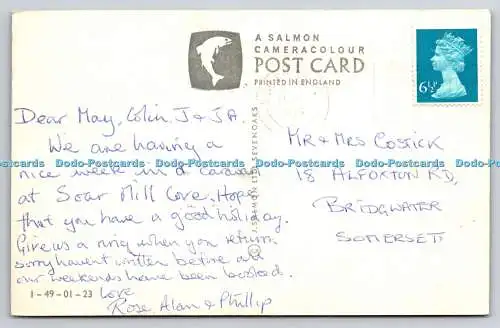 A SALMON
CAMERACOLOUR
POST CARD
PRINTED IN ENGLAND
6½P
Dear May, Colin, J & J A.
We are having a
nice week in a caravan
at Soar Mill Cove. Hope
that you have a good holiday.
Give us a ring when you return.
sorry havent written before all
our weekends have been booked.
Love
Rose, Alan & Phillip
1-49-01-23
J. SALMON LTD. SEVENOAKS
©
MR & MRS COSSICK
18 ALFOXTON RD,
BRIDGWATER
SOMERSET
Dodo-Postcards Dodo-Postcards Dodo-Postcards Dodo-Postcards Dodo-Postcards Dodo-Postcards